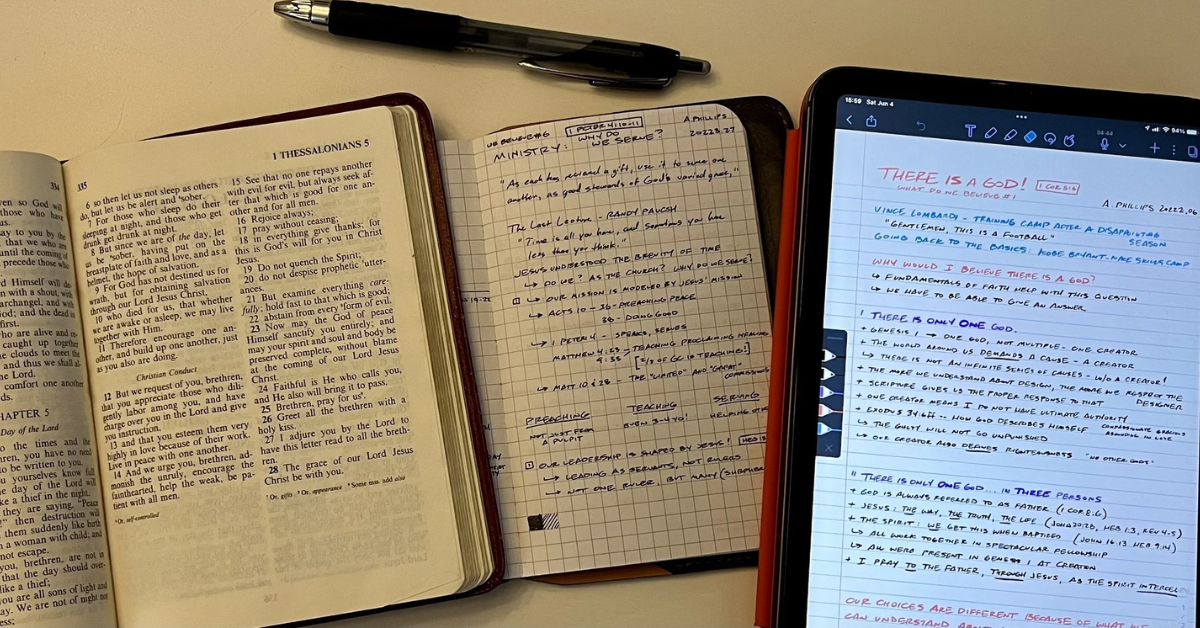 334
ven so God will
those who have
ay to you by the
that we who are
until the coming of
precede those who
rd Himself will de-
n with a shout, with
archangel, and with
God; and the dead in
first.
who are alive and re-
caught up together
he clouds to meet the
and thus we shall al-
he Lord.
comfort one another
ds.
HAPTER 5
Day of the Lord
the times and the
hren, you have no need
to be written to you.
you yourselves know full
he day of the Lord will
ke a thief in the night.
they are saying, "Peace
!" then destruction will
them suddenly like birth
n a woman with child; and
not escape.
you, brethren, are not in
that the day should over-
like a thief;
you are all sons of light and
ay. We are not of night nor
ess;
335
1 THESSALONIANS 5
6 so then let us not sleep as others
do, but let us be alert and °sober.
7 For those who sleep do their
sleeping at night, and those who get
drunk get drunk at night.
8 But since we are of the day, let
us be °sober, having put on the
breastplate of faith and love, and as a
helmet, the hope of salvation.
9 For God has not destined us for
wrath, but for obtaining salvation
through our Lord Jesus Christ,
10 who died for us, that whether
we are awake or asleep, we may live
together with Him.
11 Therefore encourage one an-
other, and build up one another, just
as you also are doing.
Christian Conduct
12 But we request of you, brethren,
that you appreciate those who dili-
gently labor among you, and have
charge over you in the Lord and give
you instruction,
13 and that you esteem them very
highly in love because of their work.
Live in peace with one another.
14 And we urge you, brethren, ad-
monish the unruly, encourage the
fainthearted, help the weak, be pa-
tient with all men.
°Or, self-controlled
15 See that no one repays another
with evil for evil, but always seek af-
ter that which is good for one an-
other and for all men.
16 Rejoice always;
17 pray without ceasing;
18 in everything give thanks; for
this is God's will for you in Christ
Jesus.
19 Do not quench the Spirit;
20 do not despise prophetic °utter-
ances.
21 But examine everything care-
fully; hold fast to that which is good;
22 abstain from every °form of evil.
23 Now may the God of peace
Himself sanctify you entirely; and
may your spirit and soul and body be
preserved complete, without blame
at the coming of our Lord Jesus
Christ.
24 Faithful is He who calls you,
and He also will bring it to pass.
25 Brethren, pray for us°.
26 Greet all the brethren with a
holy kiss.
27 I adjure you by the Lord to
have this letter read to all the breth-
ren.
28 The grace of our Lord Jesus
Christ be with you.
°Or, gifts °Or, appearance °Some mss. add also
WE BELIEVE #6
1 PETER 4:10-11
A. PHILLIPS
MINISTRY: WHY DO WE SERVE?
2022.3.27
"As each has received a gift, use it to serve one
another, as good stewards of God's varied grace,"
The Last Lecture - RANDY PAUSCH
"Time is all you have, and sometimes you have
less than you think."
JESUS UNDERSTOOD THE BREVITY OF TIME
↳ DO WE? AS THE CHURCH? WHY DO WE SERVE?
1 OUR MISSION IS MODELED BY JESUS' MISSION
↳ ACTS 10 - 36 - PREACHING PEACE
38 - DOING GOOD
↳ 1 PETER 4 - SPEAKS, SERVES
MATTHEW 4:23 > TEACHING PROCLAIMING HEALING
9:35 [2/3 OF GC IS TEACHING!]
↳ MATT 10 & 28 - THE "LIMITED" AND "GREAT"
COMMISSIONS
PREACHING TEACHING SERVING
NOT JUST FROM EVEN 3-4 YO! HELPING OTH
A PULPIT
OUR LEADERSHIP IS SHAPED BY JESUS! HEB 13
↳ LEADING AS SERVANTS, NOT RULERS
↳ NOT ONE RULER, BUT MANY (SHEPHER
15:59 Sat Jun 4
94%
04:44
THERE IS A GOD! 1 COR 8:6
WHAT DO WE BELIEVE #1
A. PHILLIPS 2022.06
VINCE LOMBARDI - TRAINING CAMP AFTER A DISAPPOINTING
"GENTLEMEN, THIS IS A FOOTBALL" SEASON
GOING BACK TO THE BASICS: KOBE BRYANT - NIKE SKILLS CAMP
WHY WOULD I BELIEVE THERE IS A GOD?
↳ FUNDAMENTALS OF FAITH HELP WITH THIS QUESTION
↳ WE HAVE TO BE ABLE TO GIVE AN ANSWER
I THERE IS ONLY ONE GOD...
+ GENESIS 1 → ONE GOD, NOT MULTIPLE - ONE CREATOR
+ THE WORLD AROUND US DEMANDS A CAUSE - A CREATOR
↳ THERE IS NOT AN INFINITE SERIES OF CAUSES - W/O A CREATOR!
+ THE MORE WE UNDERSTAND ABOUT DESIGN, THE MORE WE RESPECT THE
DESIGNER
+ SCRIPTURE GIVES US THE PROPER RESPONSE TO THAT
+ ONE CREATOR MEANS I DO NOT HAVE ULTIMATE AUTHORITY
+ EXODUS 34:6FF - HOW GOD DESCRIBES HIMSELF COMPASSIONATE GRACIOUS
ABOUNDING IN LOVE
↳ THE GUILTY WILL NOT GO UNPUNISHED
↳ OUR CREATOR ALSO DEFINES RIGHTEOUSNESS "NO OTHER GODS"
II THERE IS ONLY ONE GOD... IN THREE PERSONS
+ GOD IS ALWAYS REFERRED TO AS FATHER (1 COR 8:6)
+ JESUS: THE WAY, THE TRUTH, THE LIFE (JOHN 20:28, HEB 1:3, REV 4-5)
+ THE SPIRIT: WE GET THIS WHEN BAPTIZED (JOHN 16:13, HEB 9:14)
↳ ALL WORK TOGETHER IN SPECTACULAR FELLOWSHIP
↳ ALL WERE PRESENT IN GENESIS 1 AT CREATION
+ I PRAY TO THE FATHER, THROUGH JESUS, AS THE SPIRIT INTERCEL
OUR CHOICES ARE DIFFERENT BECAUSE OF WHAT WE
CAN UNDERSTAND ABOUT